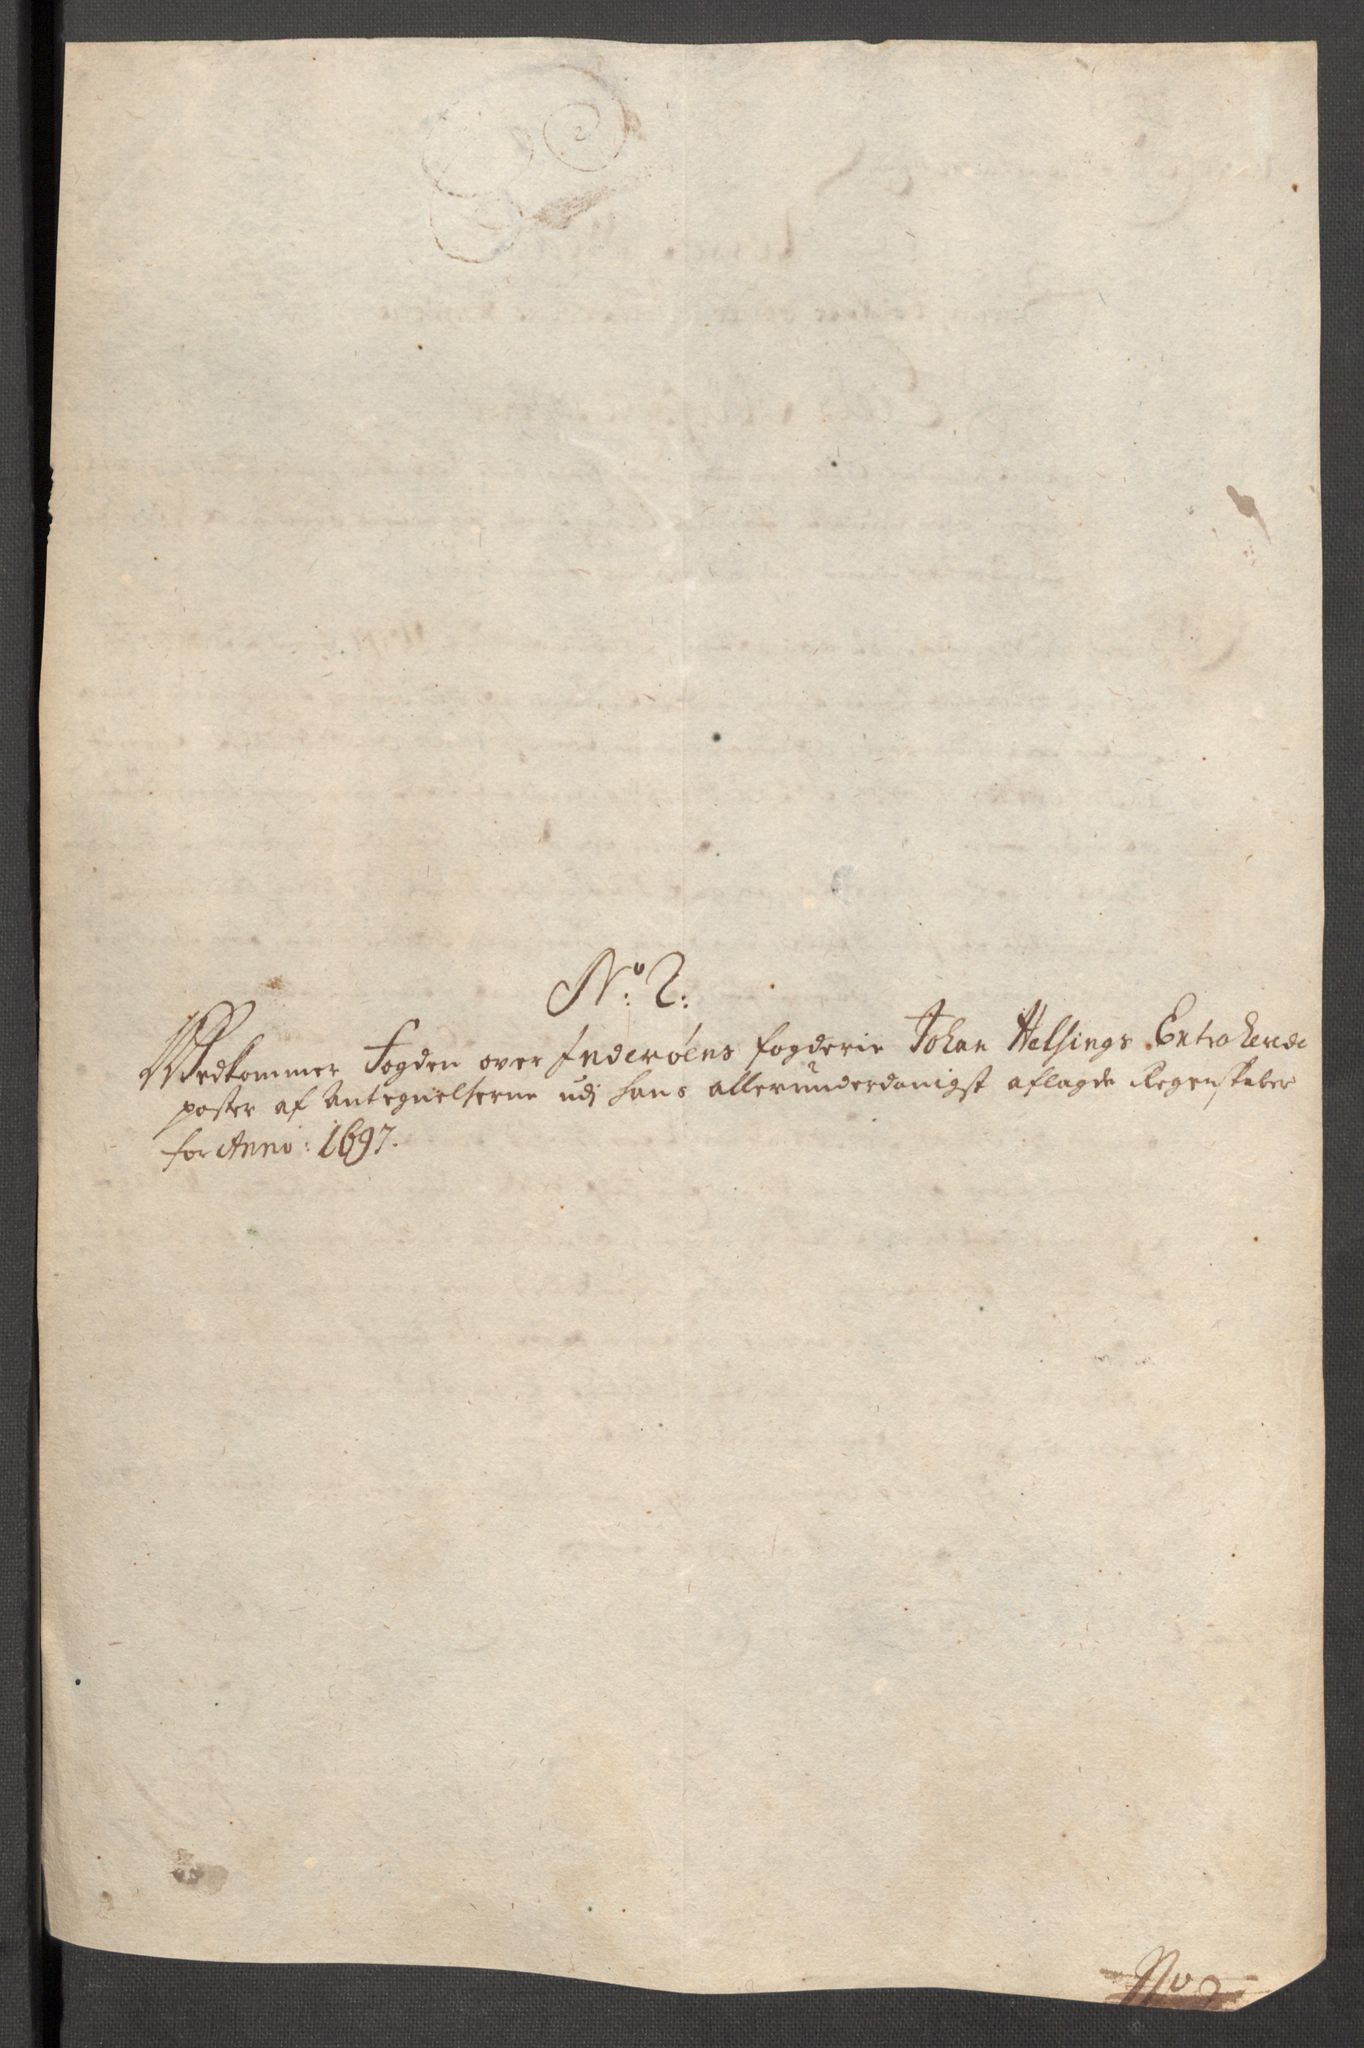 No: 2:
Vedkommer Fogden over Inderöens fogderie Johan Helsings Extraherede
poster af Antegnelserne udj hans allerunderdanigst aflagde Regenskaber
for Anno: 1697.
No 2